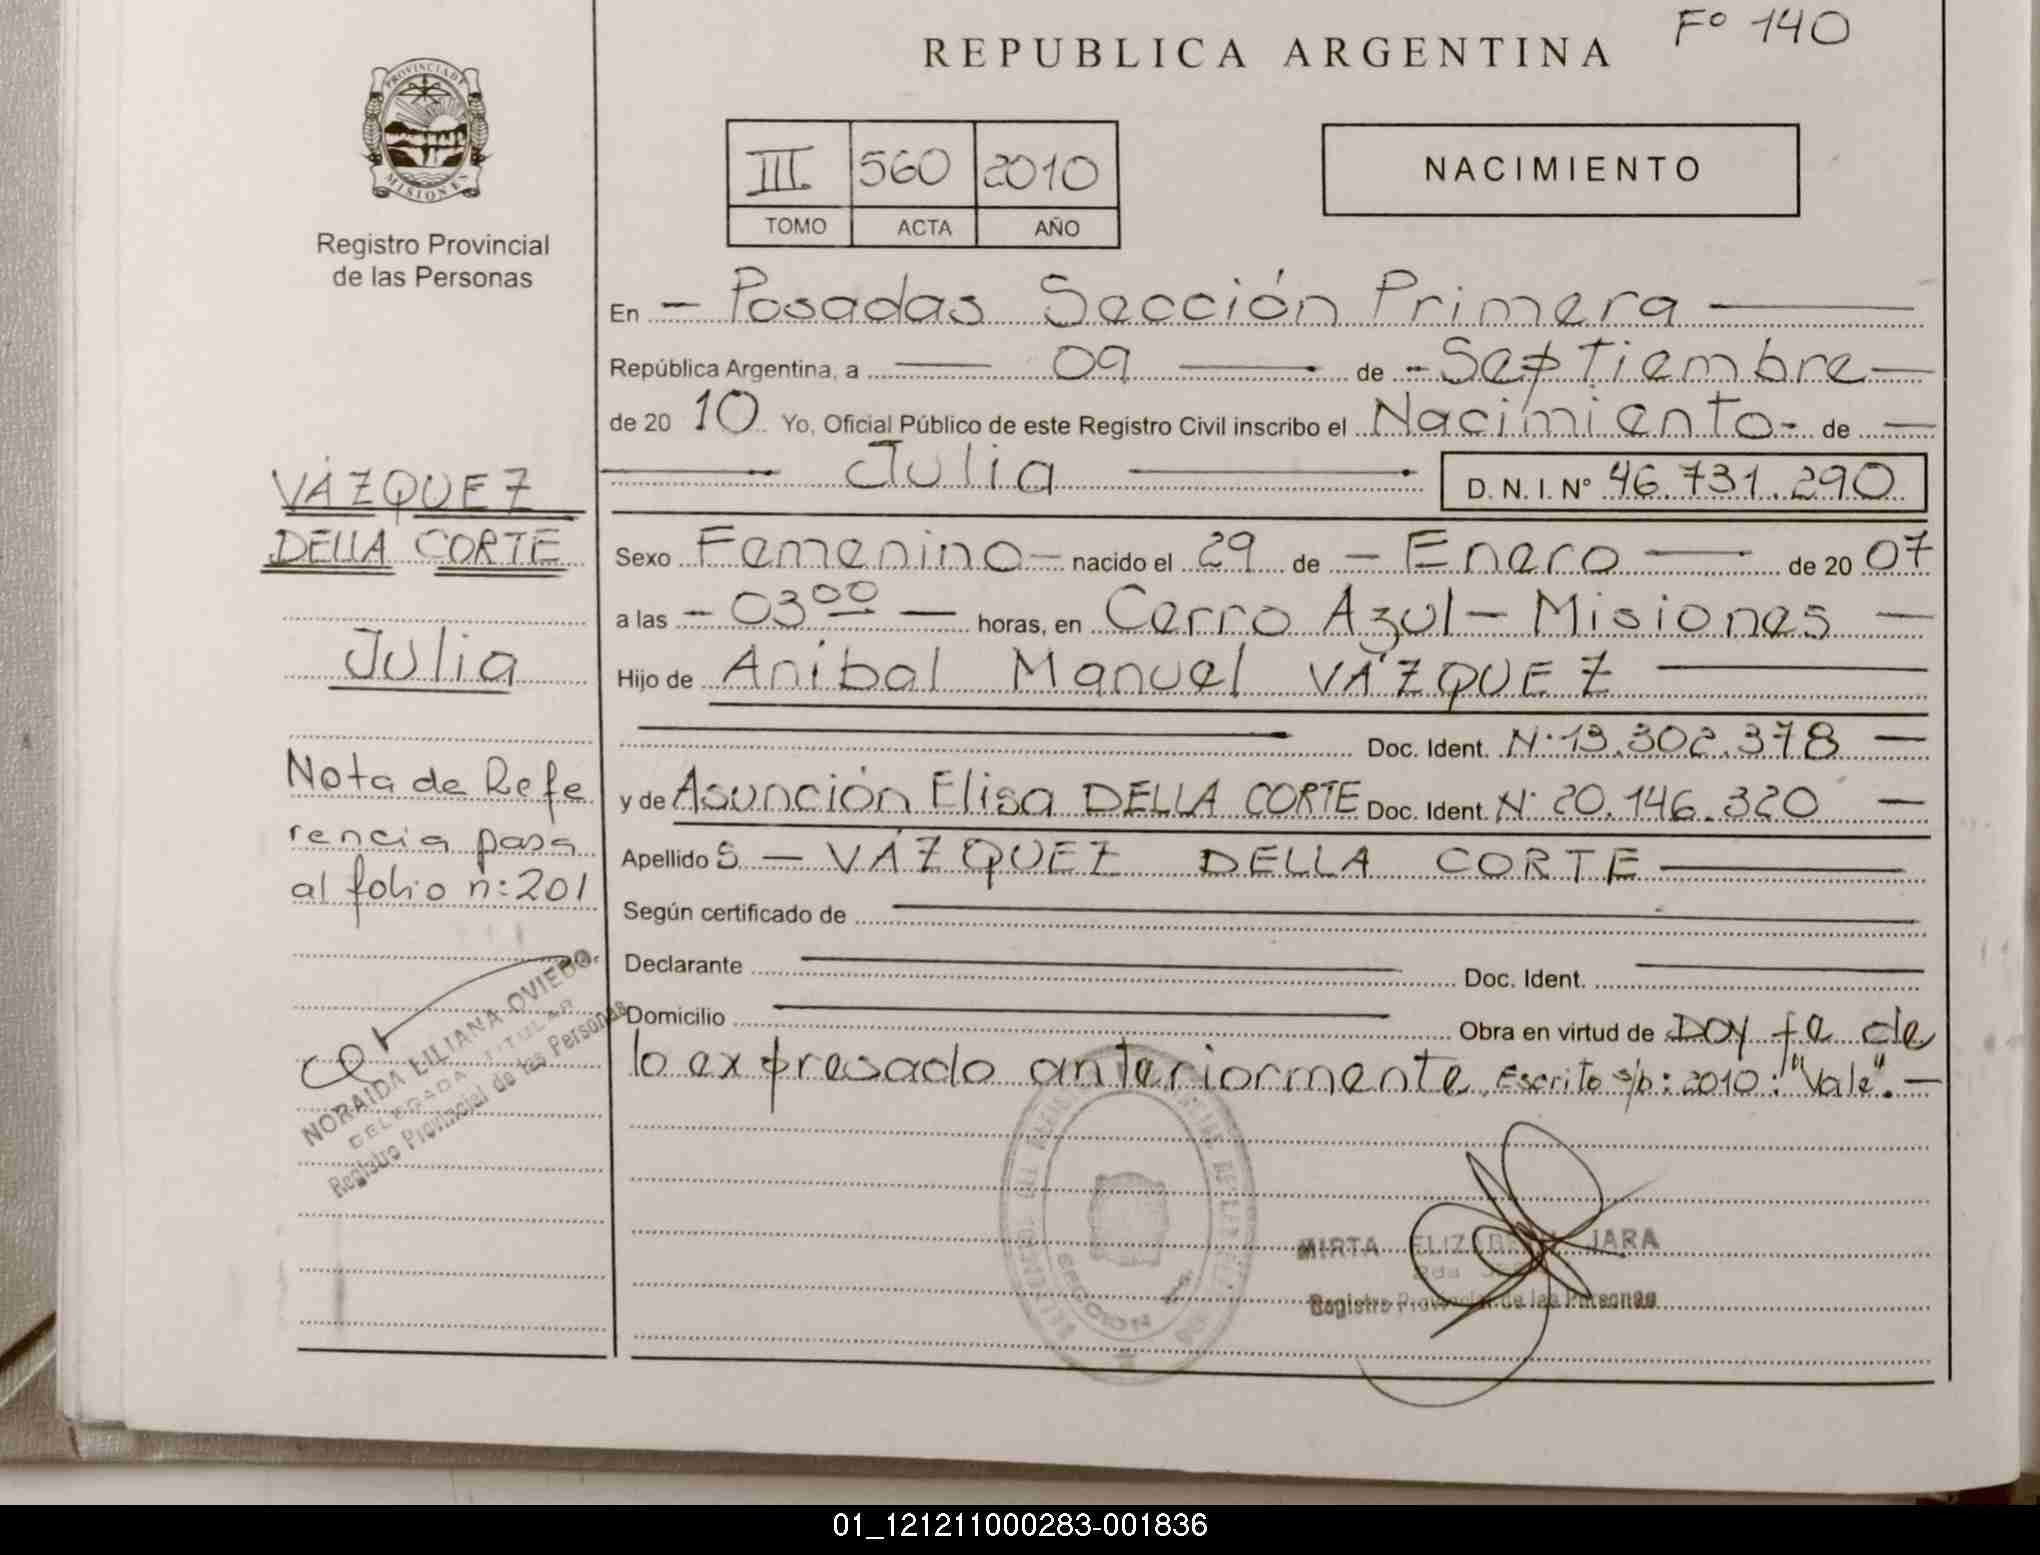 Fº 140
REPUBLICA ARGENTINA
PROVINCIA DE
MISIONES
Registro Provincial
de las Personas
III 560 2010
TOMO ACTA AÑO
NACIMIENTO
En - Posadas Sección Primera -
República Argentina, a - 09 - de - Septiembre -
de 20 10 Yo, Oficial Público de este Registro Civil inscribo el Nacimiento - de -
- Julia - D. N. I. Nº 46.731.290
Sexo Femenino - nacido el 29 de - Enero - de 20 07
a las - 03 00 - horas, en Cerro Azul - Misiones -
Hijo de Anibal Manuel VÁZQUEZ -
Doc. Ident. Nº 13.302.378 -
y de Asunción Elisa DELLA CORTE Doc. Ident. Nº 20.146.320 -
Apellido S - VÁZQUEZ DELLA CORTE -
Según certificado de -
Declarante - Doc. Ident. -
Domicilio - Obra en virtud de Doy fe de
lo expresado anteriormente. Escrito s/p: 2010: "Vale". -
VÁZQUEZ
DELLA CORTE
Julia
Nota de Refe
rencia pasa
al folio n: 201
NORAIDA LILIANA OVIEDO
DELEGADA TITULAR
Registro Provincial de las Personas
MIRTA ELIZABETH JARA
Registro Provincial de las Personas
01_121211000283-001836